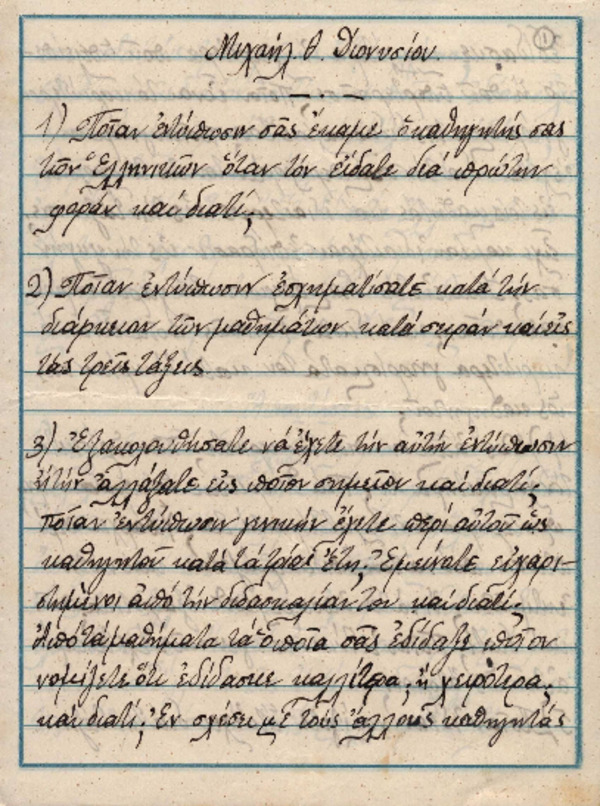 1
Μιχαήλ Θ. Διονυσίου.
1) Ποίαν ἐντύπωσιν σᾶς ἔκαμε ὁ καθηγητής σας
τῶν Ἑλληνικῶν ὅταν τόν εἴδατε διά πρώτην
φοράν καί διατί;
2) Ποίαν ἐντύπωσιν ἐσχηματίσατε κατά τήν
διάρκειαν τῶν μαθημάτων κατά σειράν καί εἰς
τάς τρεῖς τάξεις
3) Ἐξακολουθήσατε νά ἔχετε τήν αὐτήν ἐντύπωσιν
ἤ τήν ἀλλάξατε εἰς ποῖον σημεῖον καί διατί;
ποίαν ἐντύπωσιν γενικήν ἔχετε περί αὐτοῦ ὡς
καθηγητοῦ κατά τά τρία ἔτη; Ἐμείνατε εὐχαρι-
στημένοι ἀπό τήν διδασκαλίαν του καί διατί;
Ἀπό τά μαθήματα τά ὁποῖα σᾶς ἐδίδαξε ποῖον
νομίζετε ὅτι ἐδίδασκε καλλίτερα; ἤ χειρότερα;
καί διατί; Ἐν σχέσει μέ τούς ἄλλους καθηγητάς